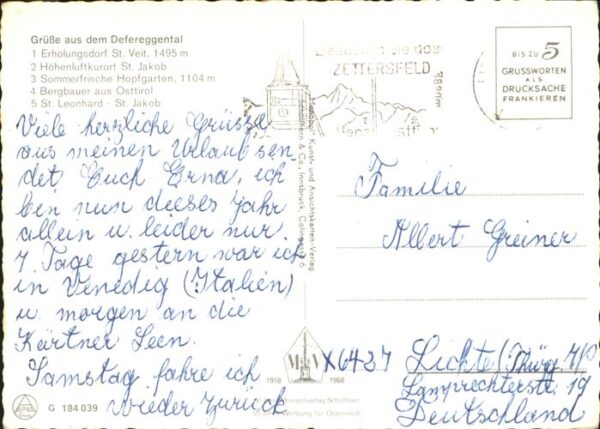 Grüße aus dem Defereggental
1 Erholungsdorf St. Veit, 1495 m
2 Höhenluftkurort St. Jakob
3 Sommerfrische Hopfgarten, 1104 m
4 Bergbauer aus Osttirol
5 St. Leonhard - St. Jakob
Viele herzliche Grüsse
aus meinen Urlaub sen-
det Euch Erna, ich
bin nun dieses Jahr
allein u. leider nur
7 Tage gestern war ich
in Venedig (Italien)
u morgen an die
Kärtner Seen.
Samstag fahre ich
wieder zurück
G 184 039
ZETTERSFELD
BIS ZU 5
GRUSSWORTEN
ALS
DRUCKSACHE
FRANKIEREN
Schöllhorn & Co., Innsbruck,
Kunst- und Ansichtskarten-Verlag
1918 1968
Werbung für Österreich
Familie
Albert Greiner
X6437 Lichte (Thürg.
Lamprechterstr. 19
Deutschland